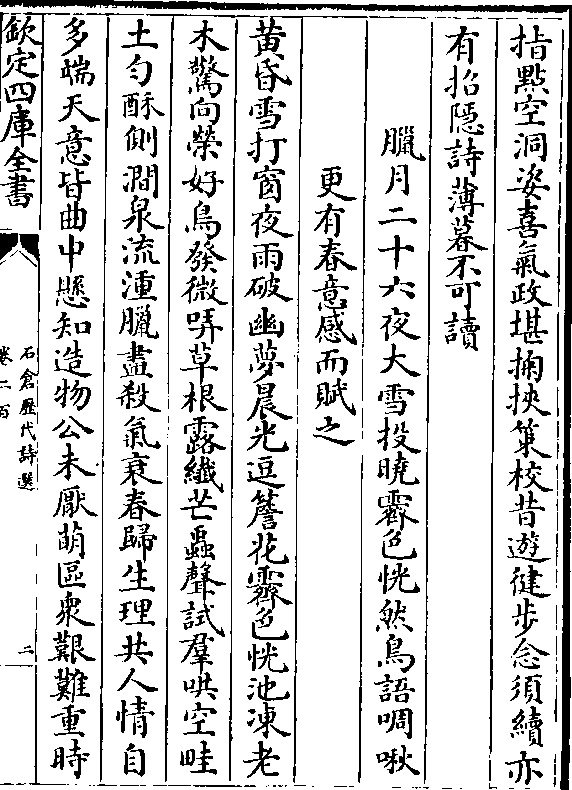 指點空洞姿喜氣政堪掬挾筴校昔遊徤步念須續亦
有招隱詩薄暮不可讀
臘月二十六夜大雪投曉霽色恍然鳥語啁啾
更有春意感而賦之
黄昏雪打窗夜雨破幽夢晨光逗簷花霽色恍池凍老
木驚向榮好鳥發微哢草根露纖芒蟲聲試羣哄空畦
土匀酥側澗泉流湩臘盡殺氣衰春歸生理共人情自
多端天意皆曲中懸知造物公未厭萌區衆艱難重時
欽定四庫全書
石倉歴代詩選
卷二百
二